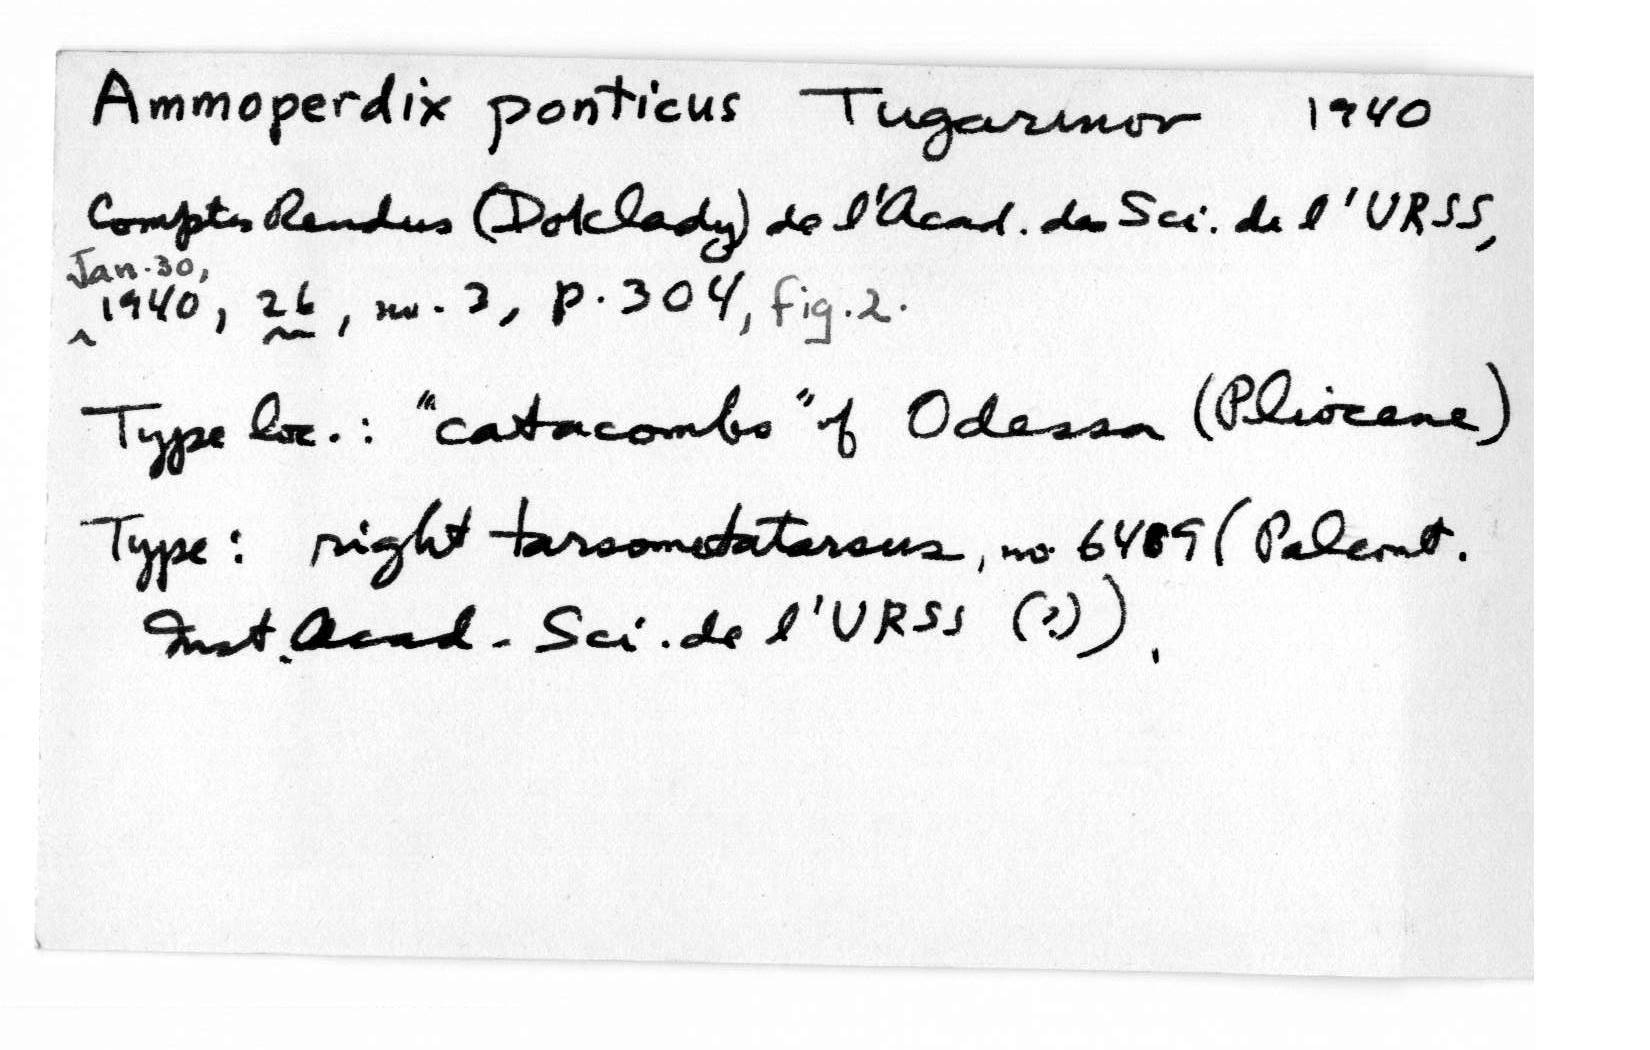 Ammoperdix ponticus Tugarinov 1940
Comptes Rendus (Doklady) de l'Acad. des Sci. de l'URSS,
Jan. 30,
^1940, 26, no. 3, p. 304, fig. 2.
Type loc.: "catacombs" of Odessa (Pliocene)
Type: right tarsometatarsus, no. 6489 (Paleont.
Inst. Acad. Sci. de l'URSS (?)).